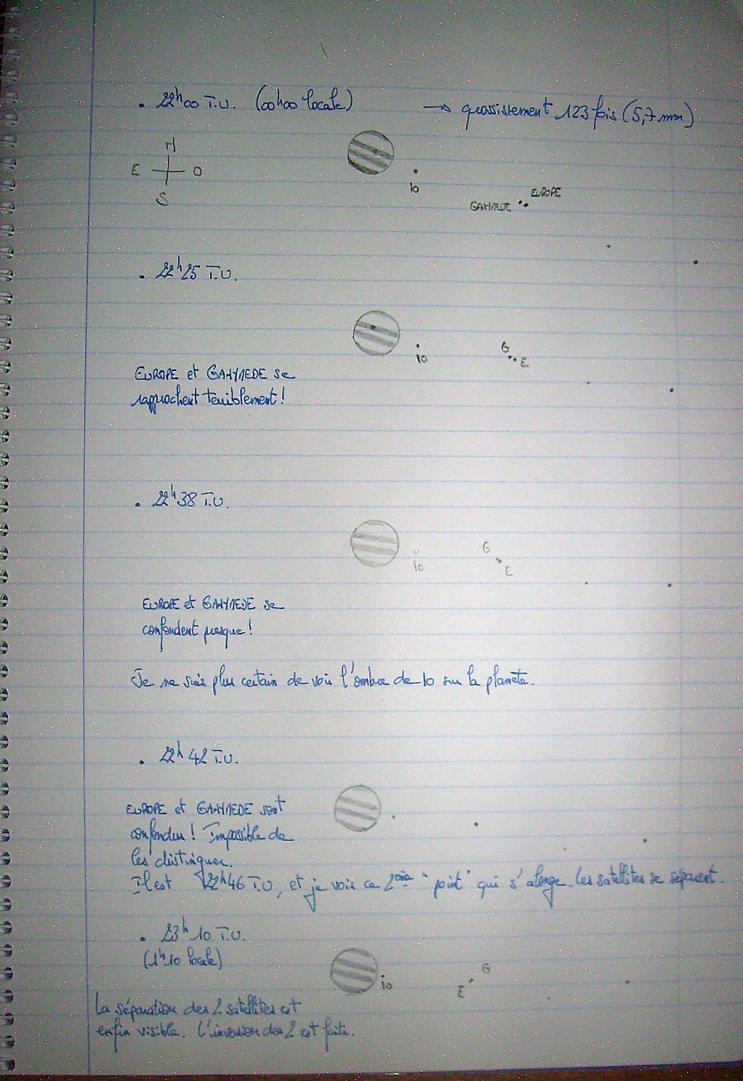 . 22h00 T.U. (00h00 locale) → grossissement 123 fois (5,7 mm)
N
E O
S
IO
EUROPE
GANYMEDE
. 22h25 T.U.
IO
G
E
EUROPE et GANYMEDE se
rapprochent terriblement !
. 22h38 T.U.
G
IO
E
EUROPE et GANYMEDE se
confondent presque !
Je ne suis plus certain de voir l'ombre de IO sur la planète.
. 22h42 T.U.
EUROPE et GANYMEDE sont
confondus ! Impossible de
les distinguer.
Il est 22h46 T.U, et je vois ce 2ème "point" qui s'allonge. Les satellites se séparent.
. 23h10 T.U.
(1h10 locale)
IO
G
E
La séparation des 2 satellites est
enfin visible. L'inversion des 2 est faite.